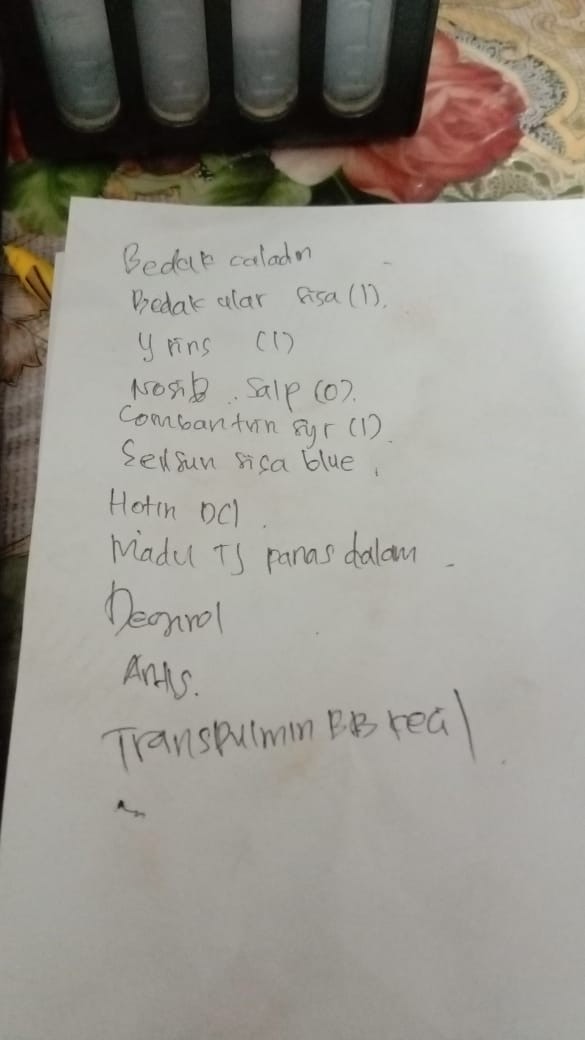 Bedak caladin
Bedak ular sisa (1).
Y rins (1)
Nosib .. Salp (0).
Combantrin syr (1).
Selsun sisa blue.
Hotin DCl.
Madu TJ panas dalam -
Antis.
Transpulmin BB kecil